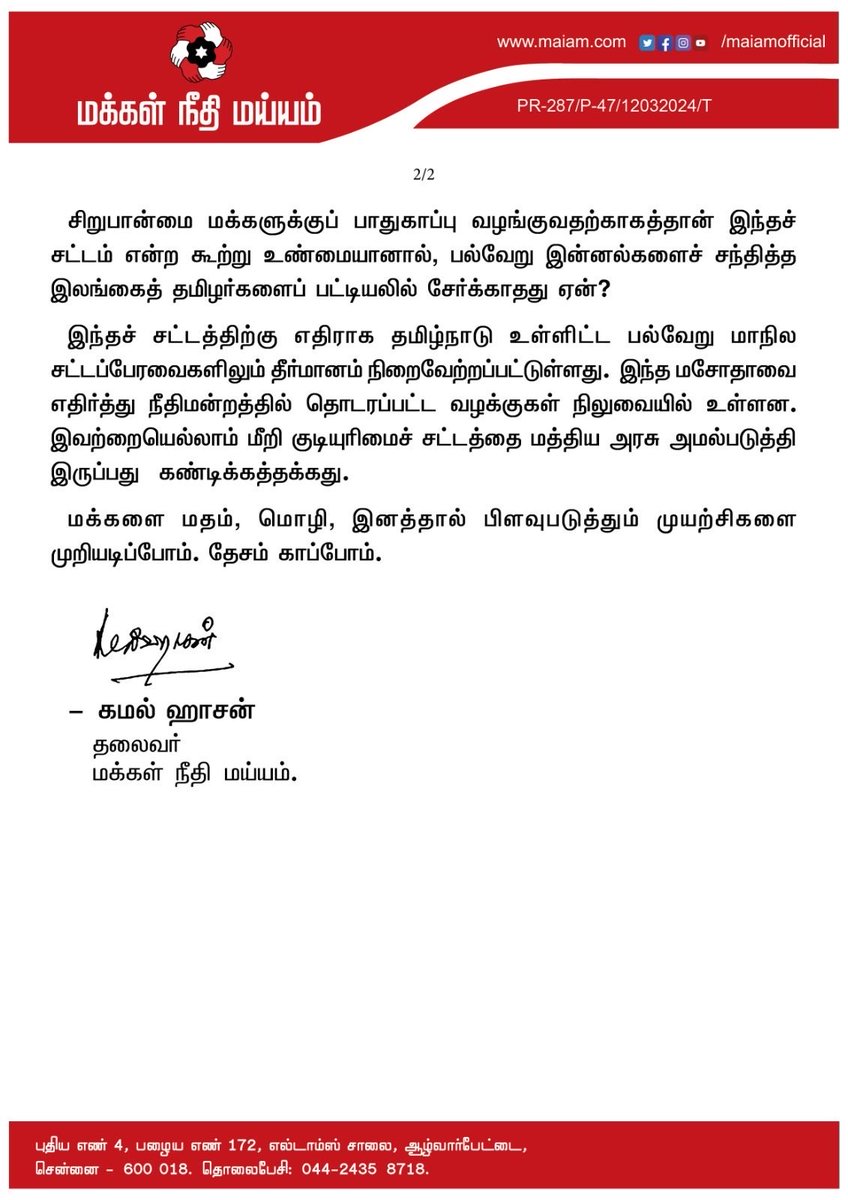 www.maiam.com /maiamofficial
மக்கள் நீதி மய்யம்
PR-287/P-47/12032024/T
2/2
சிறுபான்மை மக்களுக்குப் பாதுகாப்பு வழங்குவதற்காகத்தான் இந்தச்
சட்டம் என்ற கூற்று உண்மையானால், பல்வேறு இன்னல்களைச் சந்தித்த
இலங்கைத் தமிழர்களைப் பட்டியலில் சேர்க்காதது ஏன்?
இந்தச் சட்டத்திற்கு எதிராக தமிழ்நாடு உள்ளிட்ட பல்வேறு மாநில
சட்டப்பேரவைகளிலும் தீர்மானம் நிறைவேற்றப்பட்டுள்ளது. இந்த மசோதாவை
எதிர்த்து நீதிமன்றத்தில் தொடரப்பட்ட வழக்குகள் நிலுவையில் உள்ளன.
இவற்றையெல்லாம் மீறி குடியுரிமைச் சட்டத்தை மத்திய அரசு அமல்படுத்தி
இருப்பது கண்டிக்கத்தக்கது.
மக்களை மதம், மொழி, இனத்தால் பிளவுபடுத்தும் முயற்சிகளை
முறியடிப்போம். தேசம் காப்போம்.
– கமல் ஹாசன்
தலைவர்
மக்கள் நீதி மய்யம்.
புதிய எண் 4, பழைய எண் 172, எல்டாம்ஸ் சாலை, ஆழ்வார்பேட்டை,
சென்னை - 600 018. தொலைபேசி: 044-2435 8718.